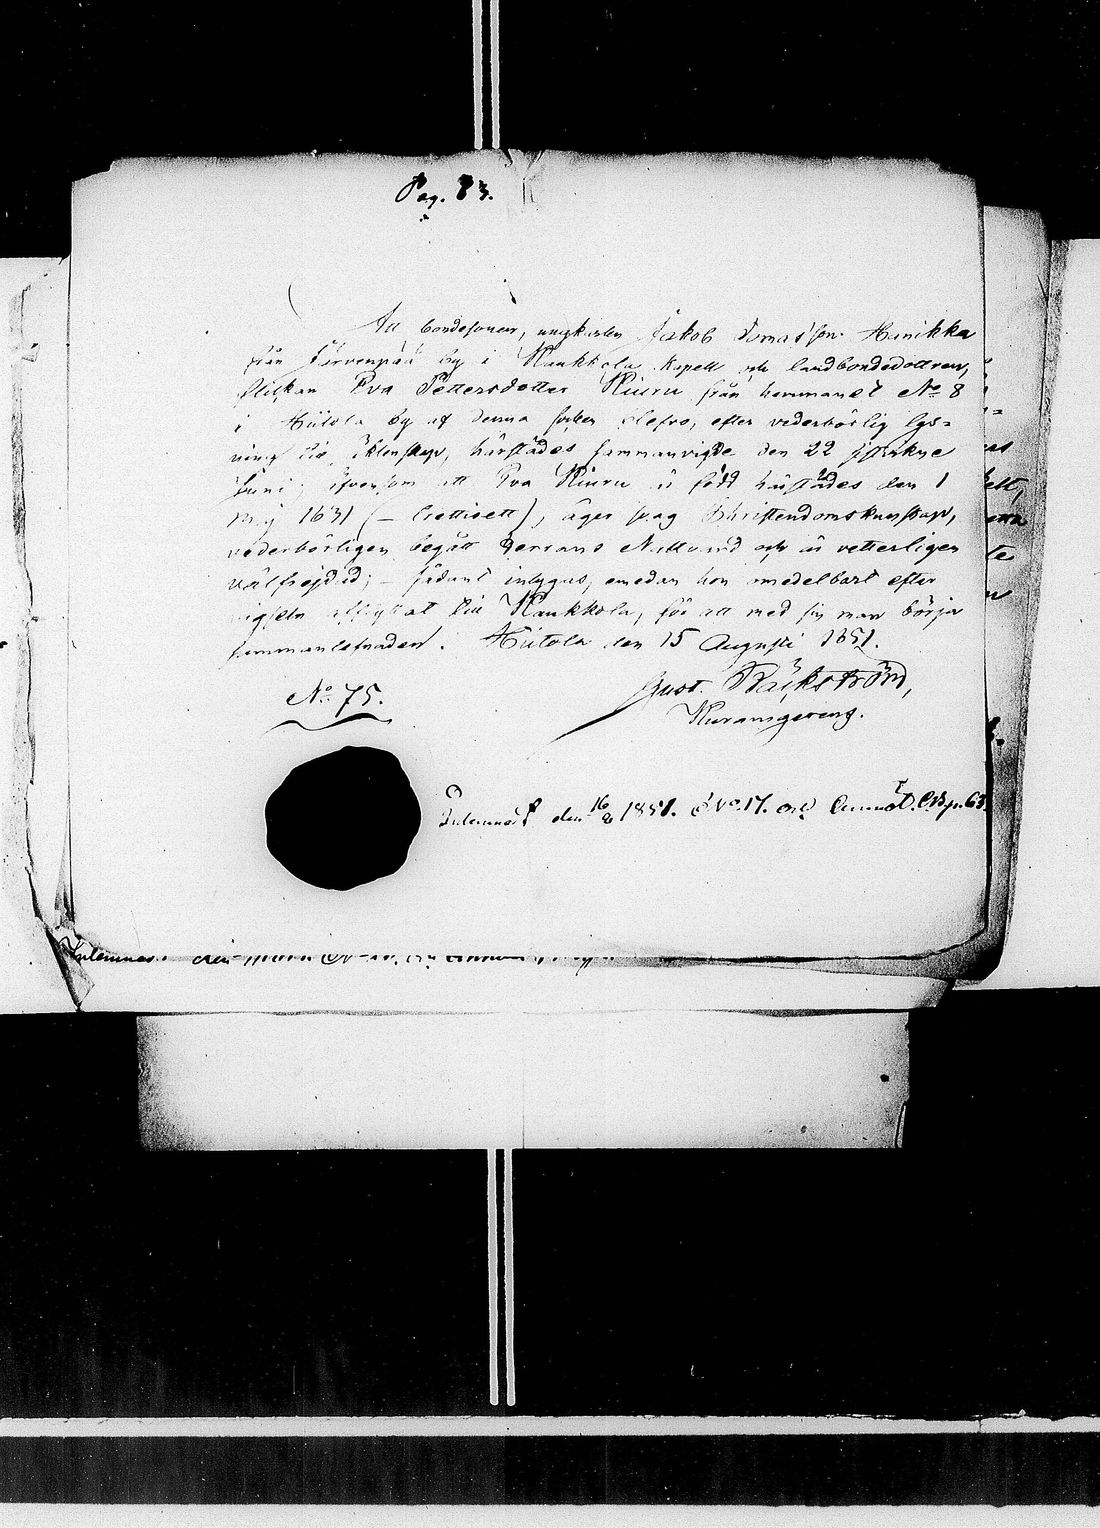 Pag. 83.
Att bondesonen, ungkarlen Jakob Tomasson Hanikka
från Järvenpää by i Kaukkola Kapell och landbondedottren,
flickan Eva Pettersdotter Kiuru från hemmanet No 8
i Hiitola by af denna socken blefvo, efter vederbörlig lys-
ning till äktenskap, härstädes sammanvigde den 22 sistlidne
Juni; äfvensom att Eva Kiuru är född härstädes den 1
Maj 1831 (– trettioett), äger svag Christendomskunskap,
vederbörligen begått Herrans Nattvard och är vetterligen
välfrejdad; – sådant intygas, emedan hon omedelbart efter
vigseln afflyttat till Kaukkola, för att med sin man börja
sammanlefnaden. Hiitola den 15 Augusti 1851.
Gust. Bäckström,
No 75.
Inlemnadt den 16/8 1851. No 17. och p. 63.
Inlemnadt